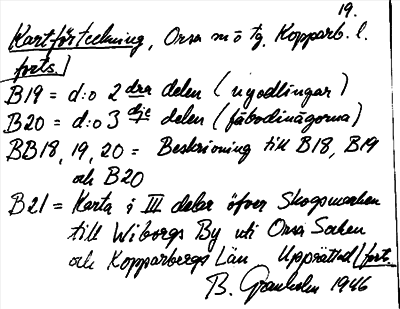 19.
Kartförteckning, Orsa m ö tg. Kopparb. l.
forts.
B19 = d:o 2 dra delen (nyodlingar)
B20 = d:o 3 dje delen (fäbodinägorna)
BB18, 19, 20 = Beskrivning till B18, B19
och B20
B21 = Karta i III delar öfver Skogsmarken
till Wiborgs By uti Orsa Socken
och Kopparbergs Län Upprättad / forts.
B. Granholm 1946